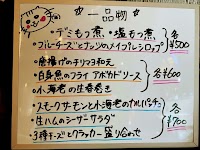 一品物
・デミもつ煮 ・塩もつ煮
・ブルーチーズとナッツのメイプルシロップ
各 ¥500
・唐揚げのチリマヨ和え
・白身魚のフライ アボカドソース
・小海老の生春巻き
各 ¥600
・スモークサーモンと小海老のカルパッチョ
・生ハムのシーザーサラダ
・3種チーズとクラッカー盛り合わせ
各 ¥700